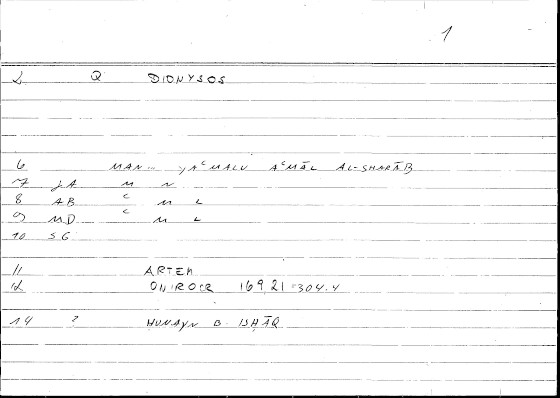 1
2 Q DIONYSOS
6 MAN... YAᶜMALU AᶜMĀL AL-SHARĀB
7 JA M N
8 AB ᶜ M L
9 MD ᶜ M L
10 SG
11 ARTEM
12 ONIROCR 169,21 = 304.4
14 ? HUNAYN B. ISHĀQ